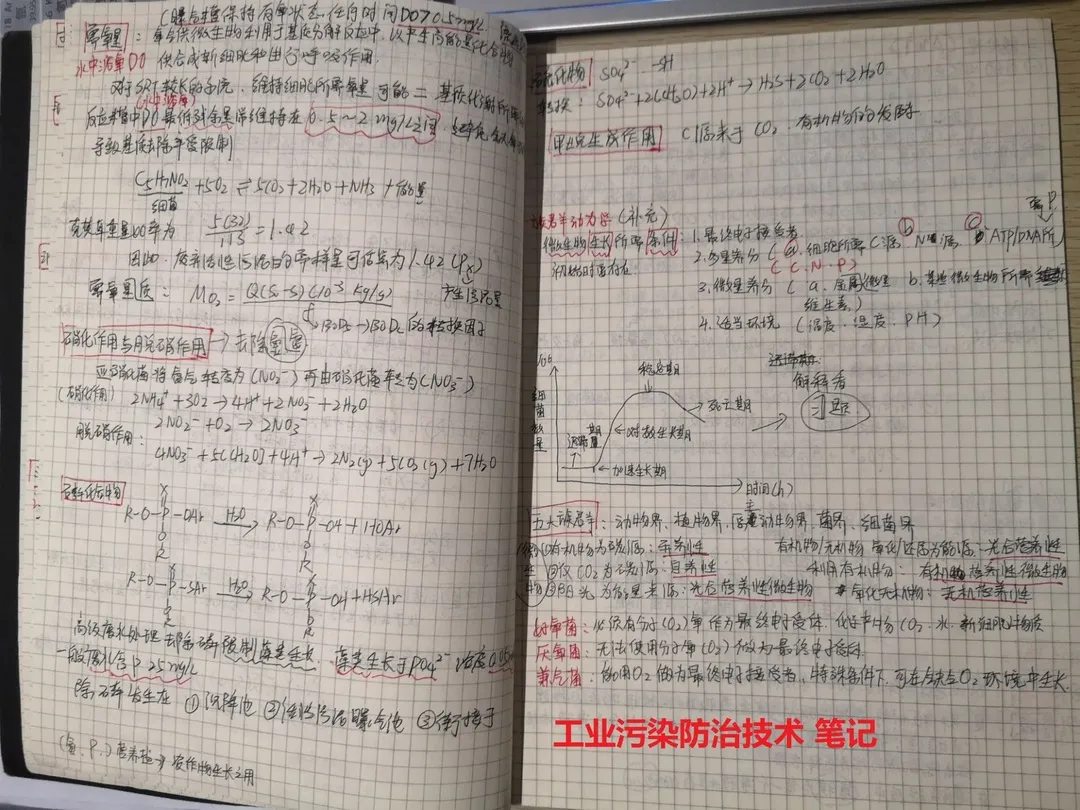 (曝气撞保持有氧状态,任何时间DO>0.5mg/L
需氧量: 氧气供微生物利用于基质分解反应中,以产生高能量化合物
水中溶氧DO 供合成新细胞和进行呼吸作用.
对于SRT较长的系统,维持细胞所需氧量可能 = 基质代谢所需
(水中溶氧)
反应槽中DO最低残余量常维持在0.5~2mg/L之间,
导致基质去除率受限制
C5H7NO2 + 5O2 ⇌ 5CO2 + 2H2O + NH3 + 能量
细菌
克莫耳重量 为 5(32)/113 = 1.42
因此,废弃活性污泥的需氧量可估算为1.42(Px)
产生污泥量
需氧量质: MO2 = Q(S0-S)(10-3 kg/g)/f
f→BOD5→BODL的转换因子
硝化作用与脱硝作用→去除氮
亚硝化菌将氨气转态为(NO2-)再由硝化菌转为(NO3-)
(硝化作用) 2NH4+ + 3O2 → 4H+ + 2NO2- + 2H2O
2NO2- + O2 → 2NO3
脱硝作用:
4NO3- + 5(CH2O) + 4H+ → 2N2(g) + 5CO2(g) + 7H2O
X
R-O-P-OAr H2O→ R-O-P-OH + HOAr
O
R
X
R-O-P-SAr H2O→ R-O-P-OH + HSAr
高级废水处理去除磷限制藻类生长.藻类生长于PO4 2- 浓度0.05
一般 含P 25mg/L
除磷发生在 ①沉降池 ②活性污泥曝气池 ③
(氮、P.)营养盐→农作物生长之用
硫化物 SO4 2- -SH
转换: SO4 2- + 2(CH2O) + 2H+ → H2S + 2CO2 + 2H2O
甲烷生成作用 C源来于CO2、有机物质的发酵
族群动力学(补充)
需P.
微生物生长所需条件: 1.最终电子接受者.
初始时需存在
2.多量养分(a.细胞所需C源 b N源 c ATP/DNA所)
(C、N、P)
3.微量养分(a.金属微量 b.某些微生物所需
维生素)
4.适当环境(温度、湿度、PH)
log
细菌数量
稳定期
死亡期
对数生长期
加速生长期
迟滞期
时间(h)
解释看
五大族群: 动物界、植物界、原生动物界、菌界、细菌界
有机物为碳源: 异营性
有机物/无机物 氧化/还原为能源: 化合营养性
②仅CO2为碳源: 自营性
利用有机成分: 有机物营养性微生物
光为能量来源: 光合营养性微生物
氧化无机物: 无机营养性
好氧菌: 必须有分子(O2)氧作为最终电子受体,代谢成分CO2、水、新细胞物质
厌氧菌: 无法使用分子氧(O2)做为最终电子受体.
兼气菌: 能用O2做为最终电子接受者,特殊条件下,可在缺乏O2环境中生长.
工业污染防治技术 笔记